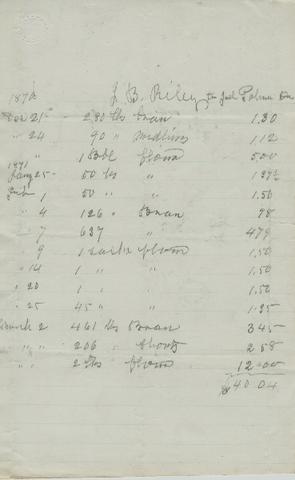 187 J. B. Riley to Dr
21 280 lbs Bran 1.80
" 24 90 " midlins 112
" 1 Bbl flour 500
1871
Jany 25 50 lbs " 1 87½
Feb 1 50 " " 1.50
" 4 126 " Bran 98
" 7 637 " " 479
" 9 1 sack flour 1.50
" 14 1 " " 1.50
" 20 1 " " 1.50
" 25 45 " " 1.25
March 2 461 lbs Bran 345
" " 206 " Shorts 258
" " 2 flour 12.00
$40.04